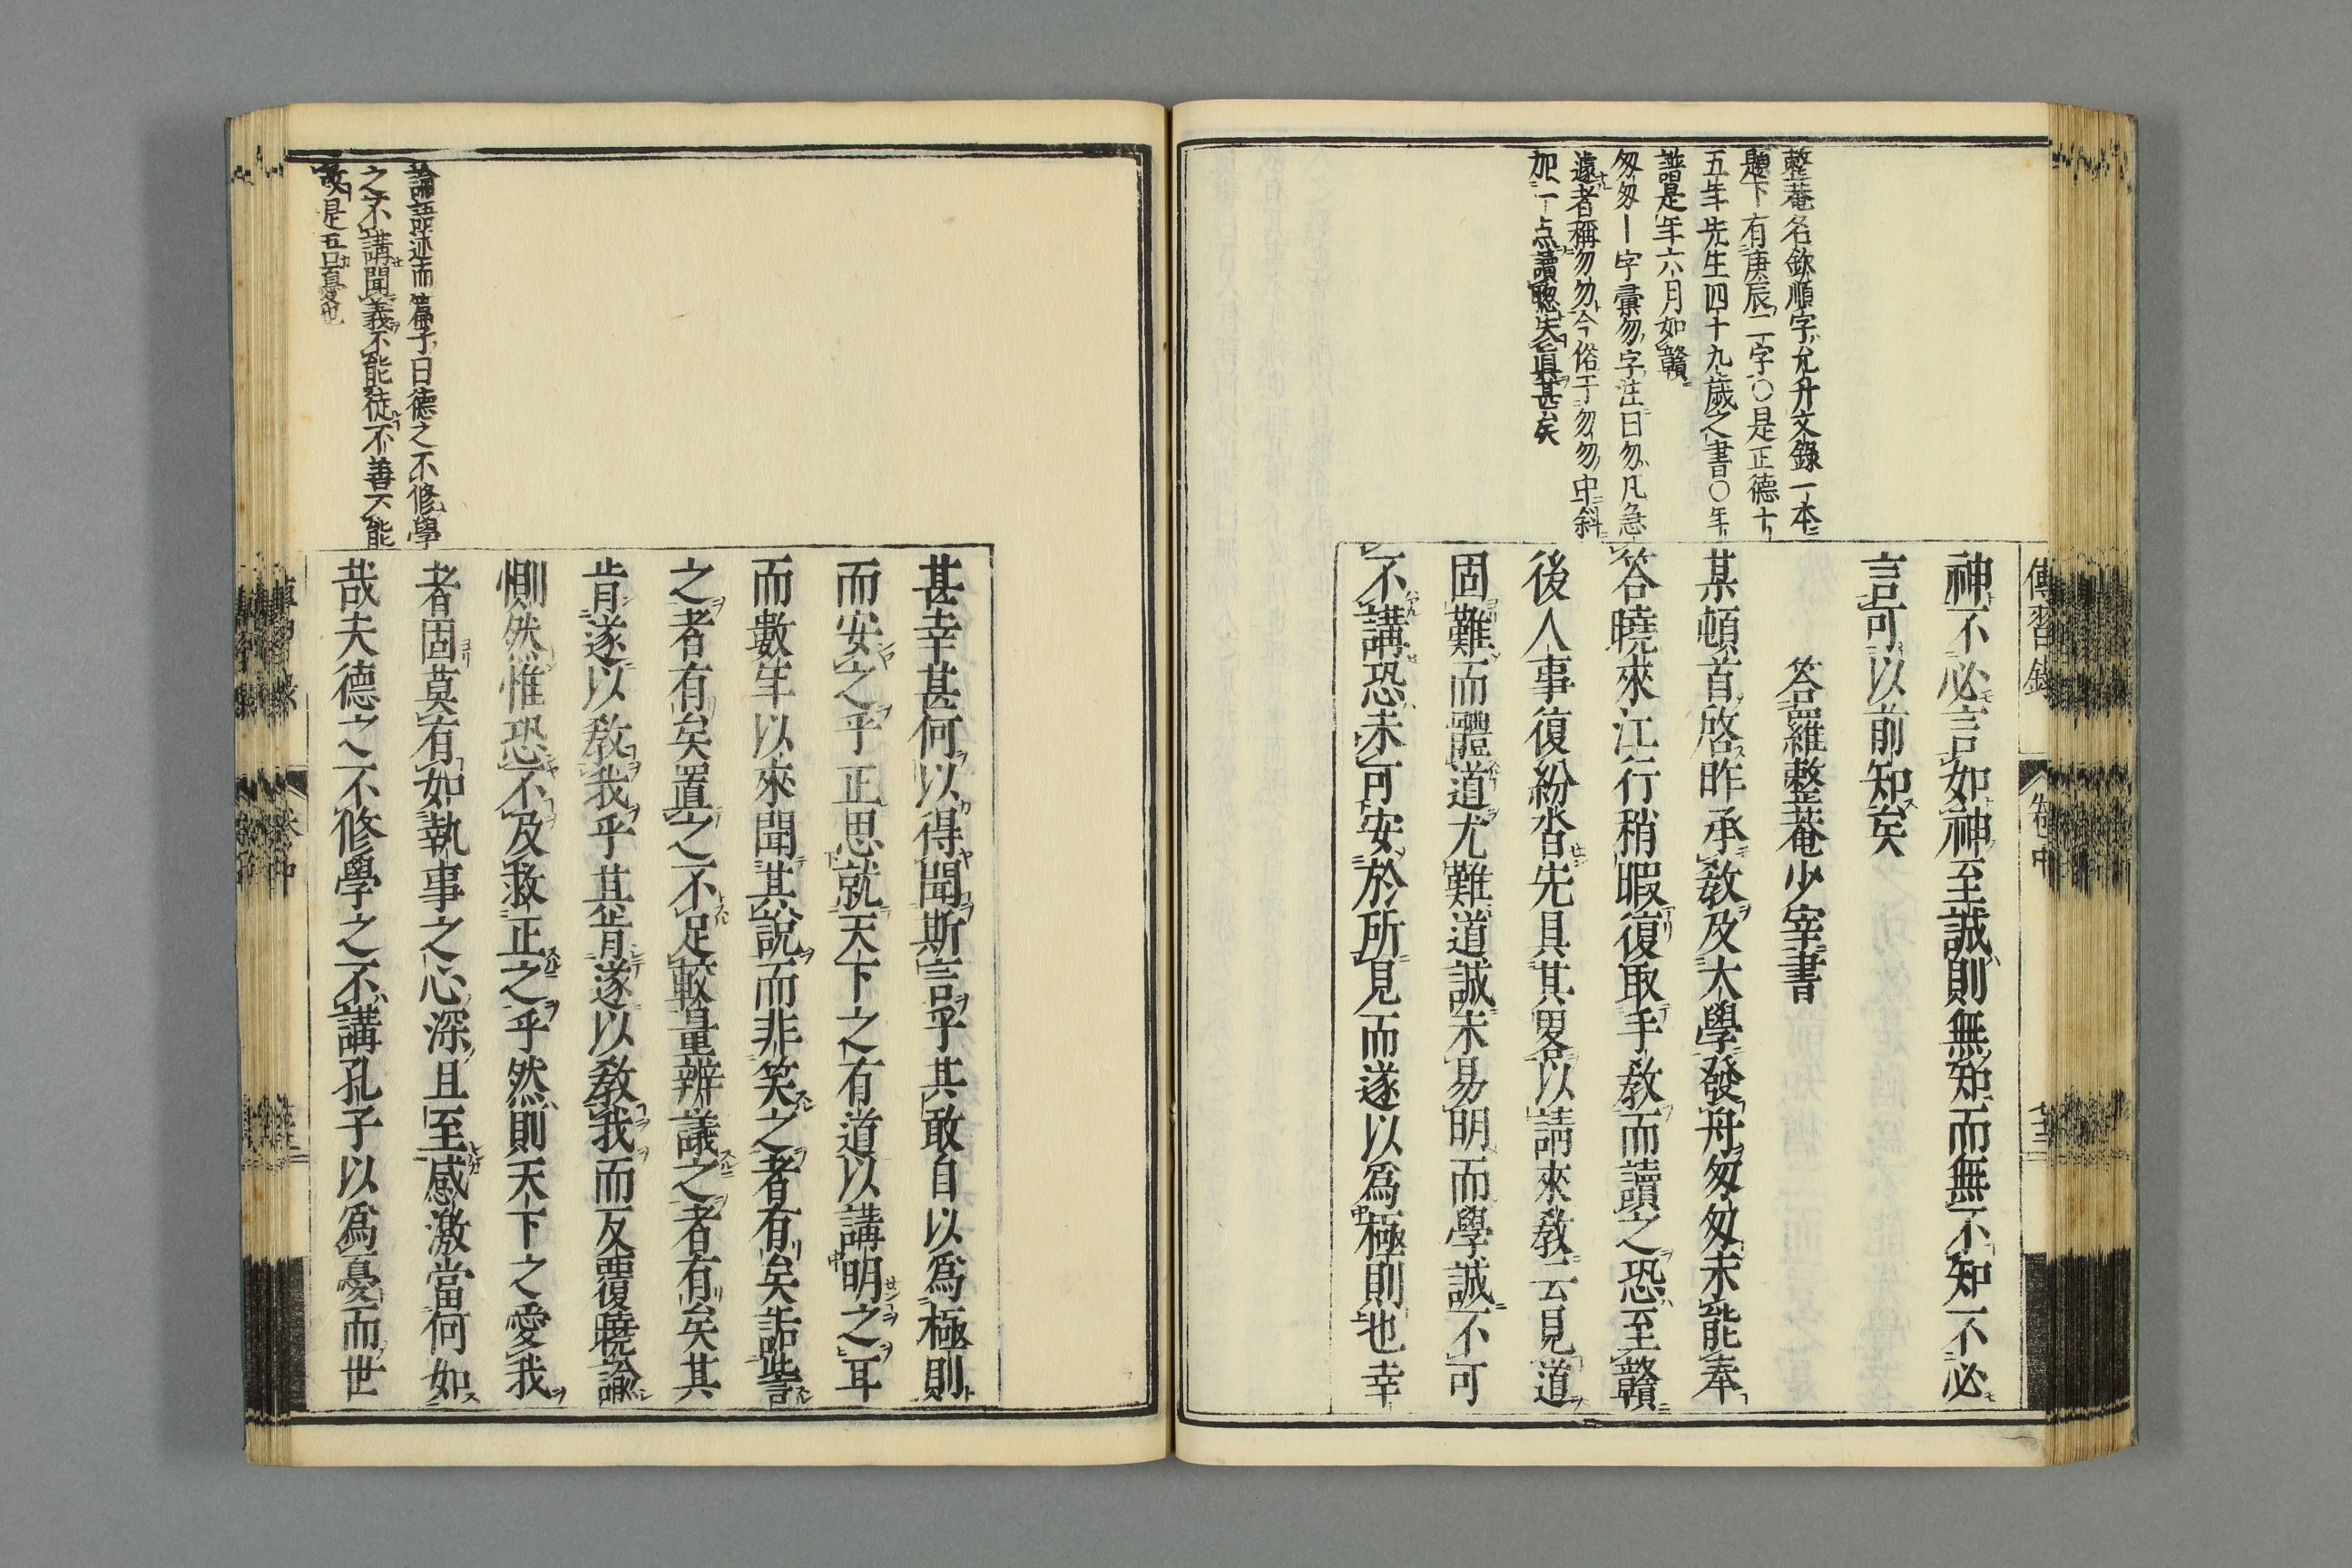 傳習錄
卷中
整菴名欽順字允升文錄一本
題下有庚辰二字〇是正德十
五年先生四十九歲之書〇年
譜是年六月如贛
匆匆ー字彙勿字注曰勿凡急
遽者稱勿勿今俗于勿勿中斜
加一点讀聰失眞甚矣
神不必言如神至誠則無知而無不知不必
言可以前知矣
答羅整菴少宰書
某頓首啓昨承教及大學發舟匆匆未能奉
答曉來江行稍暇復取手教而讀之恐至贛
後人事復紛沓先具其畧以請來教云見道
固難而體道尤難道誠未易明而學誠不可
不講恐未可安於所見而遂以爲極則也幸
論語述而篇子曰德之不修學
之不講聞義不能徙不善不能
改是吾憂也
甚幸甚何以得聞斯言乎其敢自以爲極則
而安之乎正思就天下之有道以講明之耳
而數年以來聞其說而非笑之者有矣詬訾
之者有矣置之不足較量辨議之者有矣其
肯遂以教我乎其肯遂以教我而反覆曉諭
惻然惟恐不及救正之乎然則天下之愛我
者固莫有如執事之心深且至感激當何如
哉夫德之不修學之不講孔子以爲憂而世